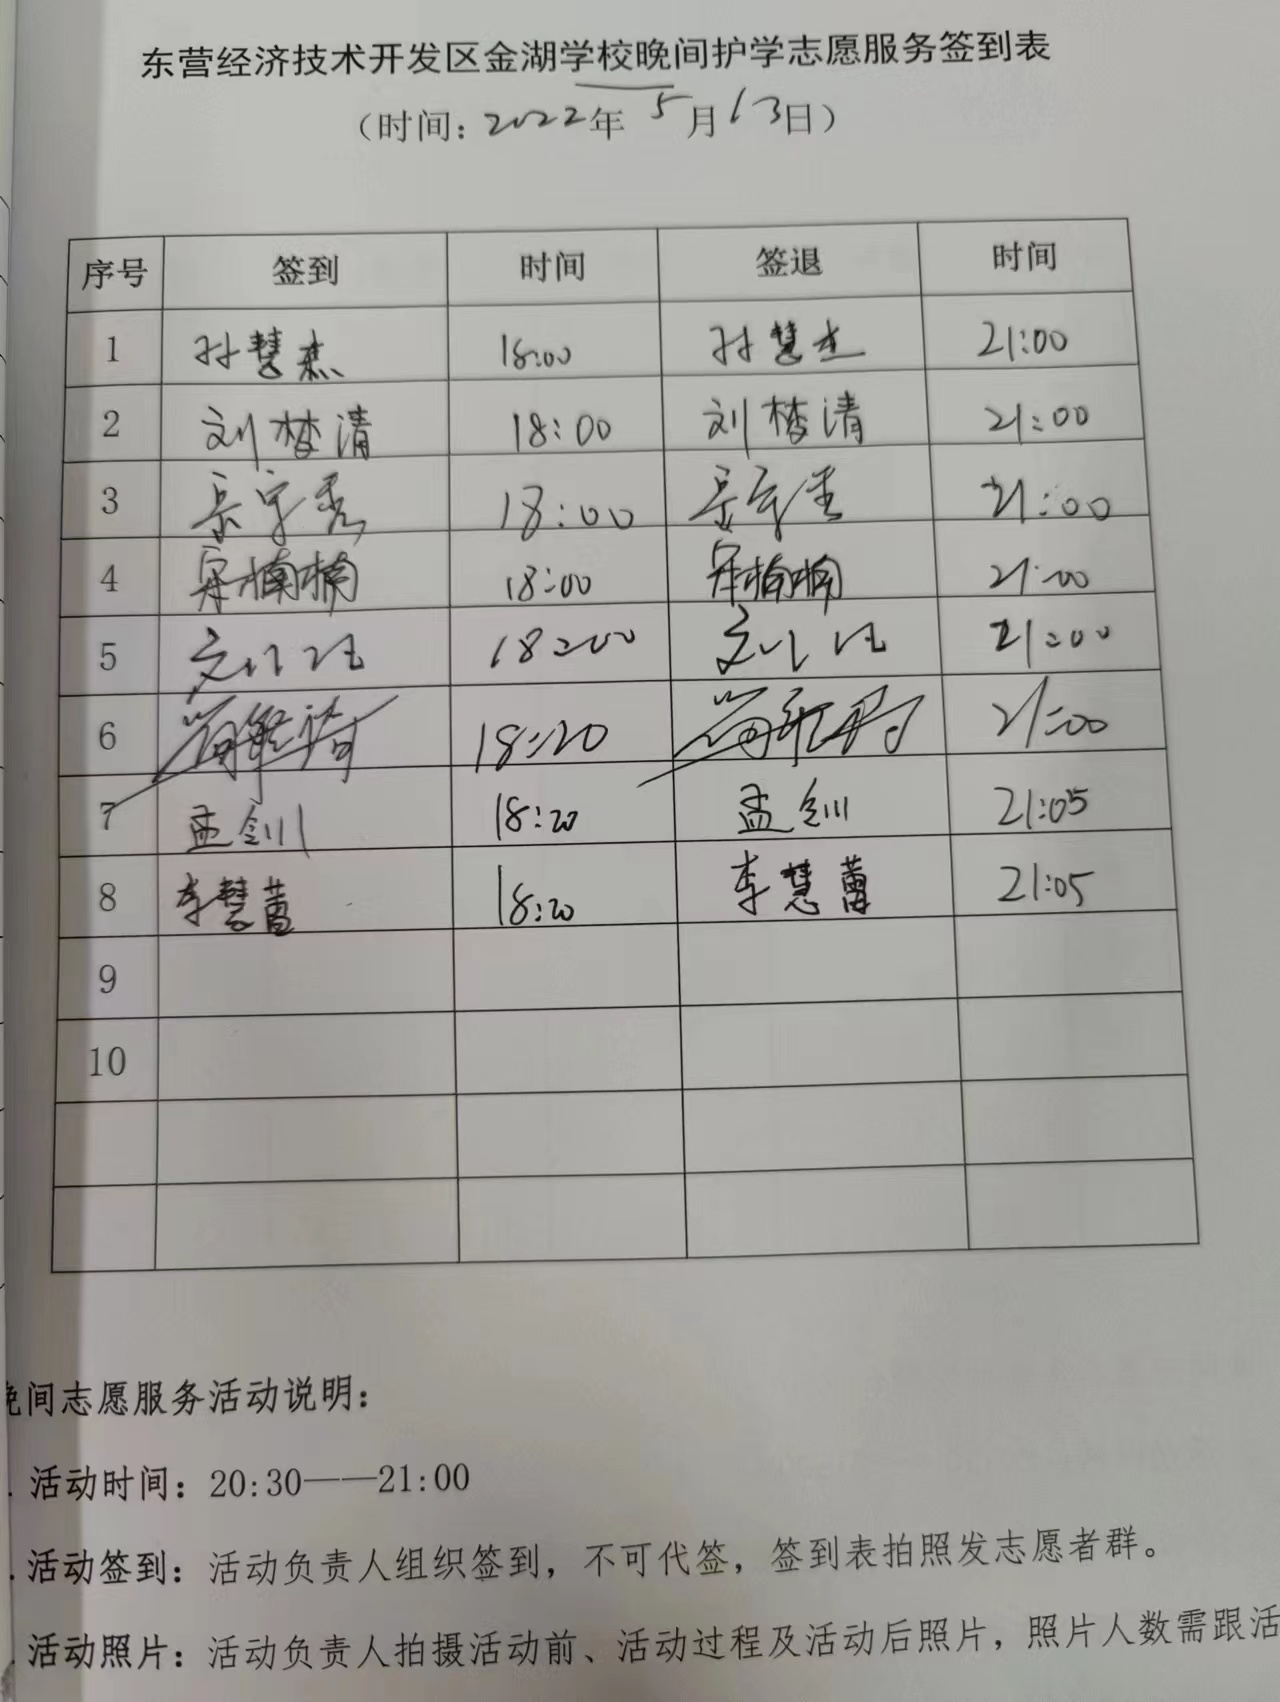 东营经济技术开发区金湖学校晚间护学志愿服务签到表
（时间：2022年 5月13日）
序号 签到 时间 签退 时间
1 孙慧杰 18:00 孙慧杰 21:00
2 刘梦清 18:00 刘梦清 21:00
3 18:00 21:00
4 宋楠楠 18:00 宋楠楠 21:00
5 18:00 21:00
6 18:20 21:00
7 孟剑 18:20 孟剑 21:05
8 李慧蕾 18:20 李慧蕾 21:05
9
10
晚间志愿服务活动说明：
. 活动时间：20:30——21:00
. 活动签到：活动负责人组织签到，不可代签，签到表拍照发志愿者群。
. 活动照片：活动负责人拍摄活动前、活动过程及活动后照片，照片人数需跟活